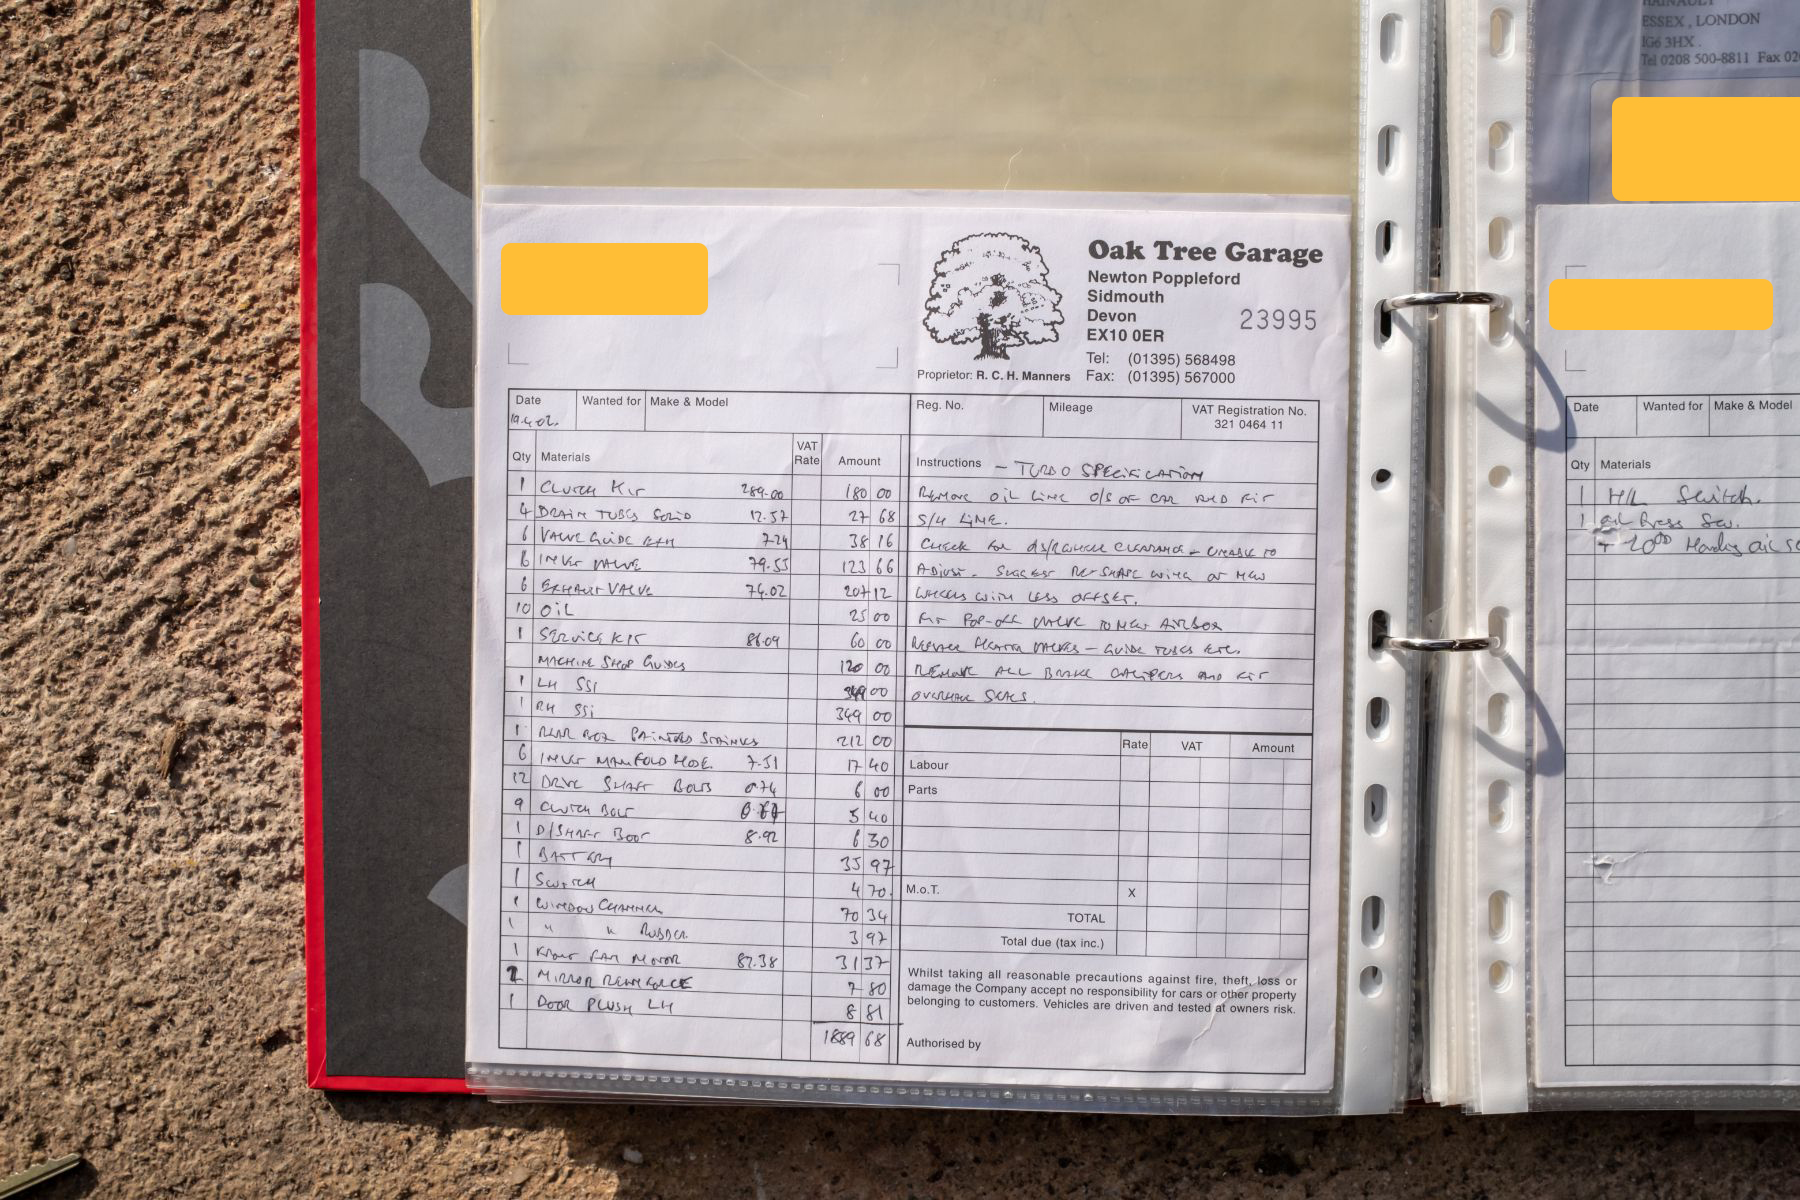 Oak Tree Garage
Newton Poppleford
Sidmouth
Devon
EX10 0ER
23995
Tel: (01395) 568498
Fax: (01395) 567000
Proprietor: R. C. H. Manners
Date Wanted for Make & Model Reg. No. Mileage VAT Registration No.
19.4.02. 321 0464 11
Qty Materials VAT Rate Amount
1 CLUTCH KIT 289.00 180 00
4 DRAIN TUBES SOLID 12.57 27 68
6 VALVE GUIDE 7.24 38 16
6 INLET VALVE 79.55 123 66
6 EXHAUST VALVE 74.02 207 12
10 OIL 25 00
1 SERVICE KIT 86.09 60 00
MACHINE SHOP GUIDES 120 00
1 LH SSI 349 00
1 RH SSI 349 00
1 REAR BOX PAINTED STAINLESS 212 00
6 INLET MANIFOLD 7.51 17 40
12 DRIVE SHAFT BOLTS 0.74 6 00
9 CLUTCH BOLT 5 40
1 D/SHAFT BOOT 8.92 6 30
1 BATTERY 35 97
1 SWITCH 4 70
1 WINDOW CHANNEL 70 34
1 " " RUBBER 3 97
1 FRONT FAN MOTOR 87.38 31 37
MIRROR 7 80
1 DOOR PLUSH LH 8 81
1889 68
Instructions - TURBO SPECIFICATION
REMOVE OIL LINE O/S OF CAR AND FIT
S/H LINE.
CHECK FOR CLEARANCE - UNABLE TO
ADJUST - SUGGEST OR NEW
WHEELS WITH LESS OFFSET.
FIT POP-OFF VALVE TO NEW AIRBOX
VALVES - GUIDE TUBES ETC.
REMOVE ALL BRAKE CALIPERS AND FIT
OVERHAUL SEALS.
Rate VAT Amount
Labour
Parts
M.o.T. X
TOTAL
Total due (tax inc.)
Whilst taking all reasonable precautions against fire, theft, loss or
damage the Company accept no responsibility for cars or other property
belonging to customers. Vehicles are driven and tested at owners risk.
Authorised by
HAINAULT
ESSEX, LONDON
IG6 3HX.
Tel 0208 500-8811 Fax
Date Wanted for Make & Model
Qty Materials
1 H/L Switch.
1 Oil Press Sw.